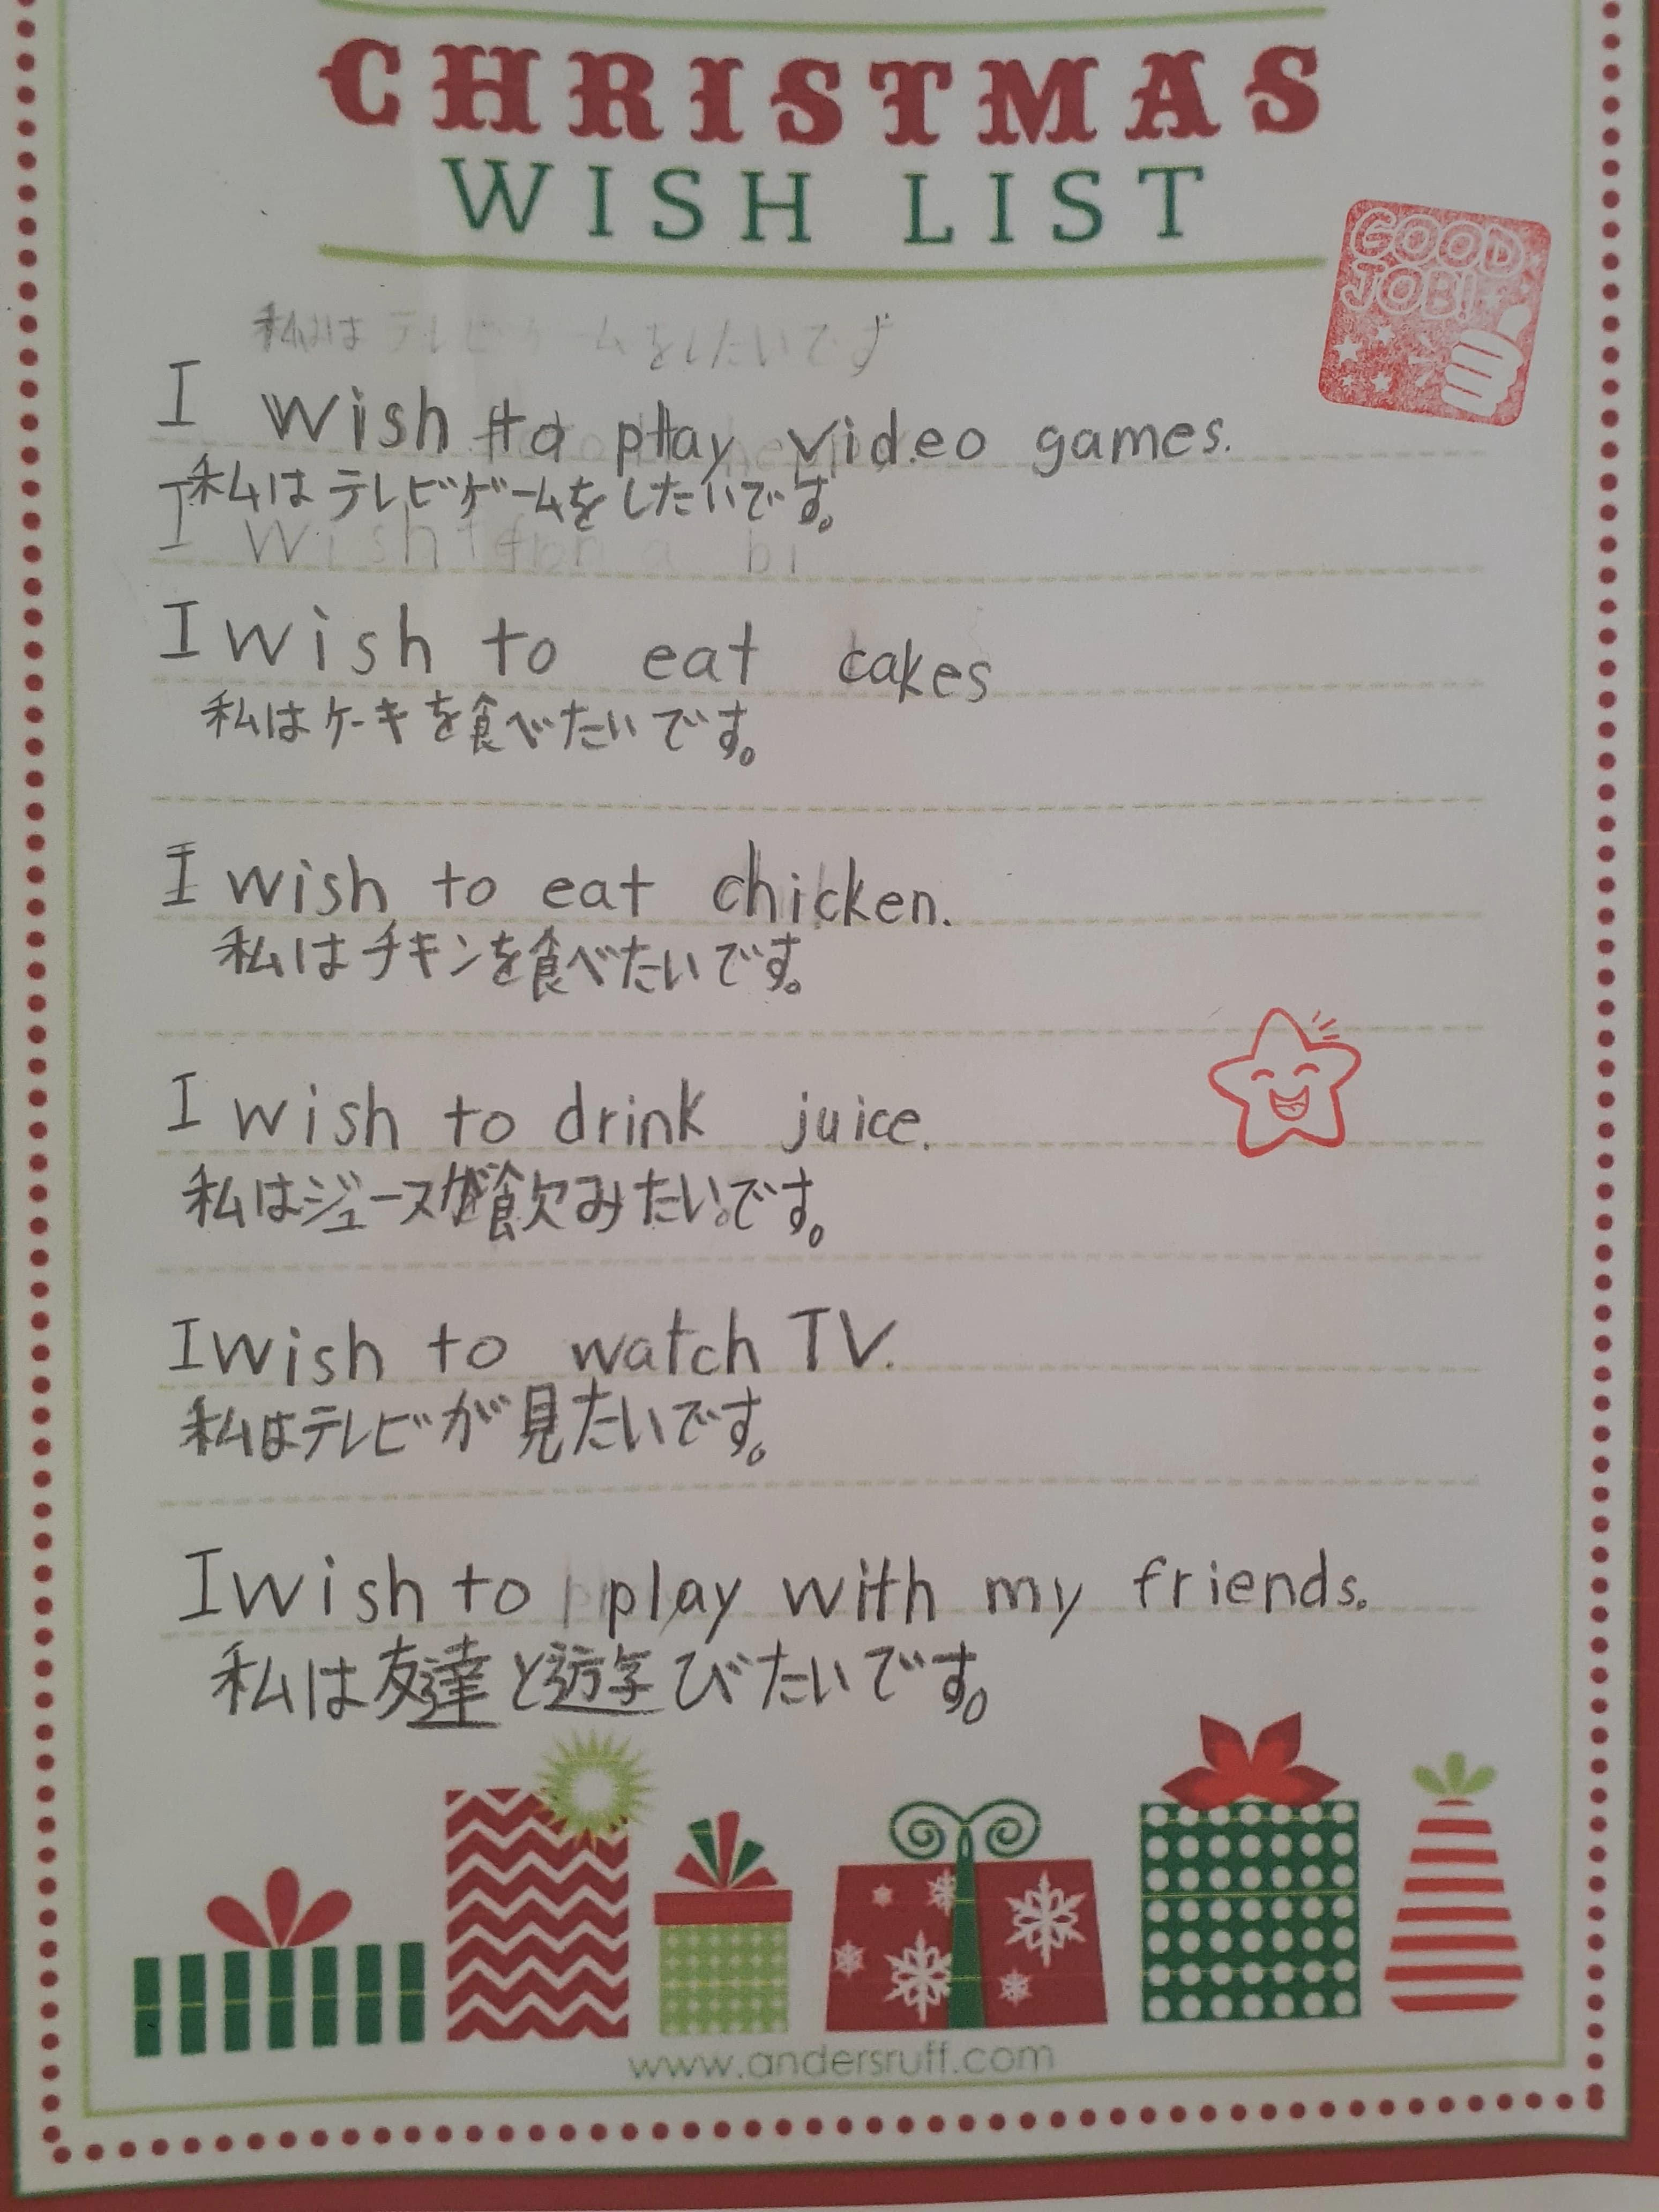 CHRISTMAS
WISH LIST
GOOD
JOB!
私は テレビゲームをしたいです
I wish to play video games.
私はテレビゲームをしたいです。
I wish for a bi
I wish to eat cakes
私はケーキを食べたいです。
I wish to eat chicken.
私はチキンを食べたいです。
I wish to drink juice.
私はジュースが飲みたいです。
I wish to watch TV.
私はテレビが見たいです。
I wish to play with my friends.
私は友達と遊びたいです。
www.andersruff.com